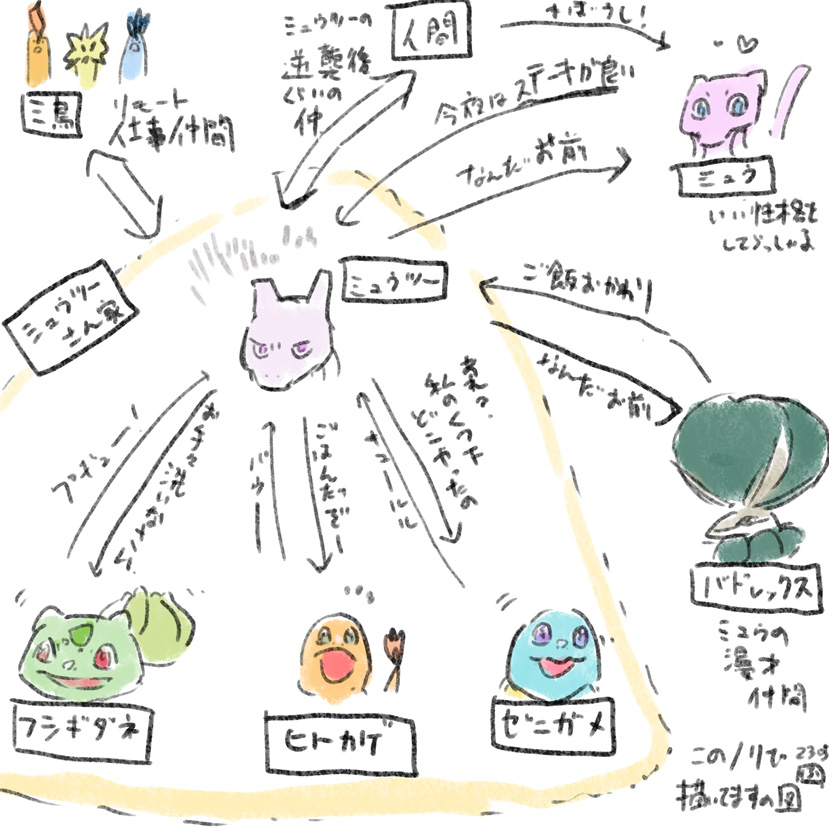 三鳥
リモート
仕事仲間
ミュウツーの
逆襲後
くらいの
仲
人間
すぼうし!
今夜はステーキが良い
なんだお前
ミュウ
いい性格を
してらっしゃる
ミュウツー
さん家
ミュウツー
ご飯おかわり
なんだお前
フギュー!
おてて洗いなさーい
バウー
ごはんだぞー
キュールル
あれ?
私のくつ下
どこやったの
バドレックス
ミュウの
漫才
仲間
フシギダネ
ヒトカゲ
ゼニガメ
このノリで
描いてますの図